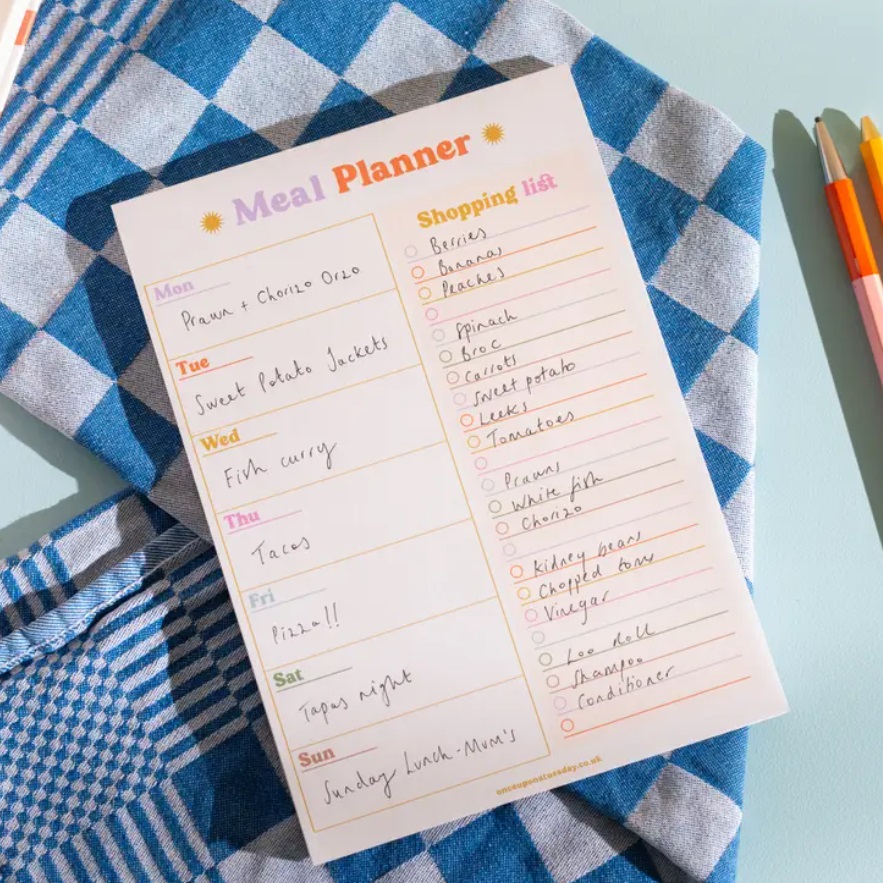 Meal Planner
Mon
Prawn + Chorizo Orzo
Tue
Sweet Potato Jackets
Wed
Fish curry
Thu
Tacos
Fri
Pizza!!
Sat
Tapas night
Sun
Sunday Lunch - Mum's
Shopping list
Berries
Bananas
Peaches
Spinach
Broc
Carrots
Sweet potato
Leeks
Tomatoes
Prawns
White fish
Chorizo
Kidney beans
Chopped toms
Vinegar
Loo Roll
Shampoo
Conditioner
onceuponatuesday.co.uk